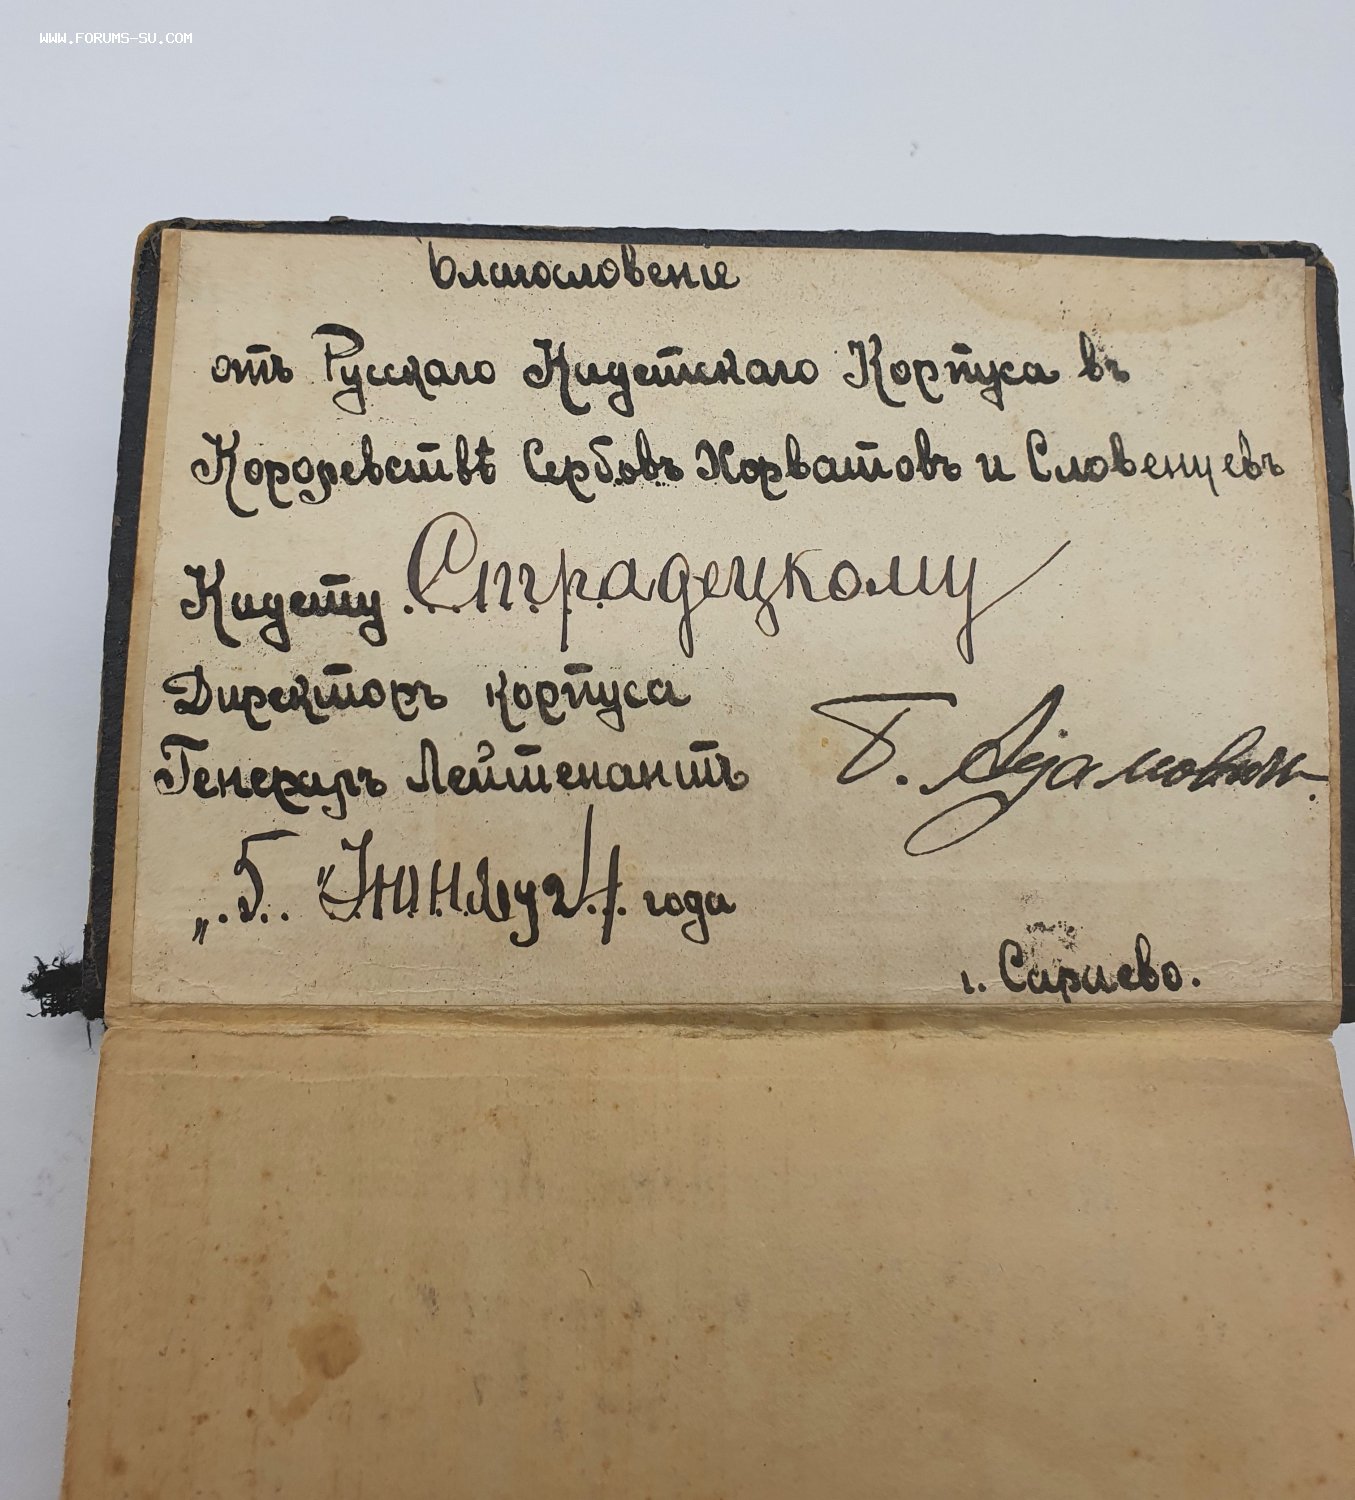 WWW.FORUMS-SU.COM
Благословенiе
отъ Русскаго Кадетскаго Корпуса въ
Королевствѣ Сербовъ Хорватовъ и Словенцевъ
Кадету Страдецкому
Директоръ корпуса
Генералъ Лейтенантъ Б. Адамович.
„5" Июня 1924 года
г. Сараево.